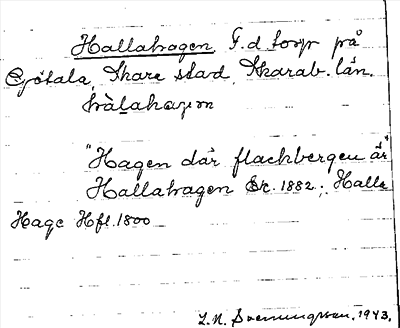 Hallahagen F.d. torp på
Götala, Skara stad, Skarab. län.
hàlahagən
"Hagen där flackbergen är"
Hallahagen Ek. 1882; Halla
Hage Hfl. 1800
L.N. Svenungsson. 1943.